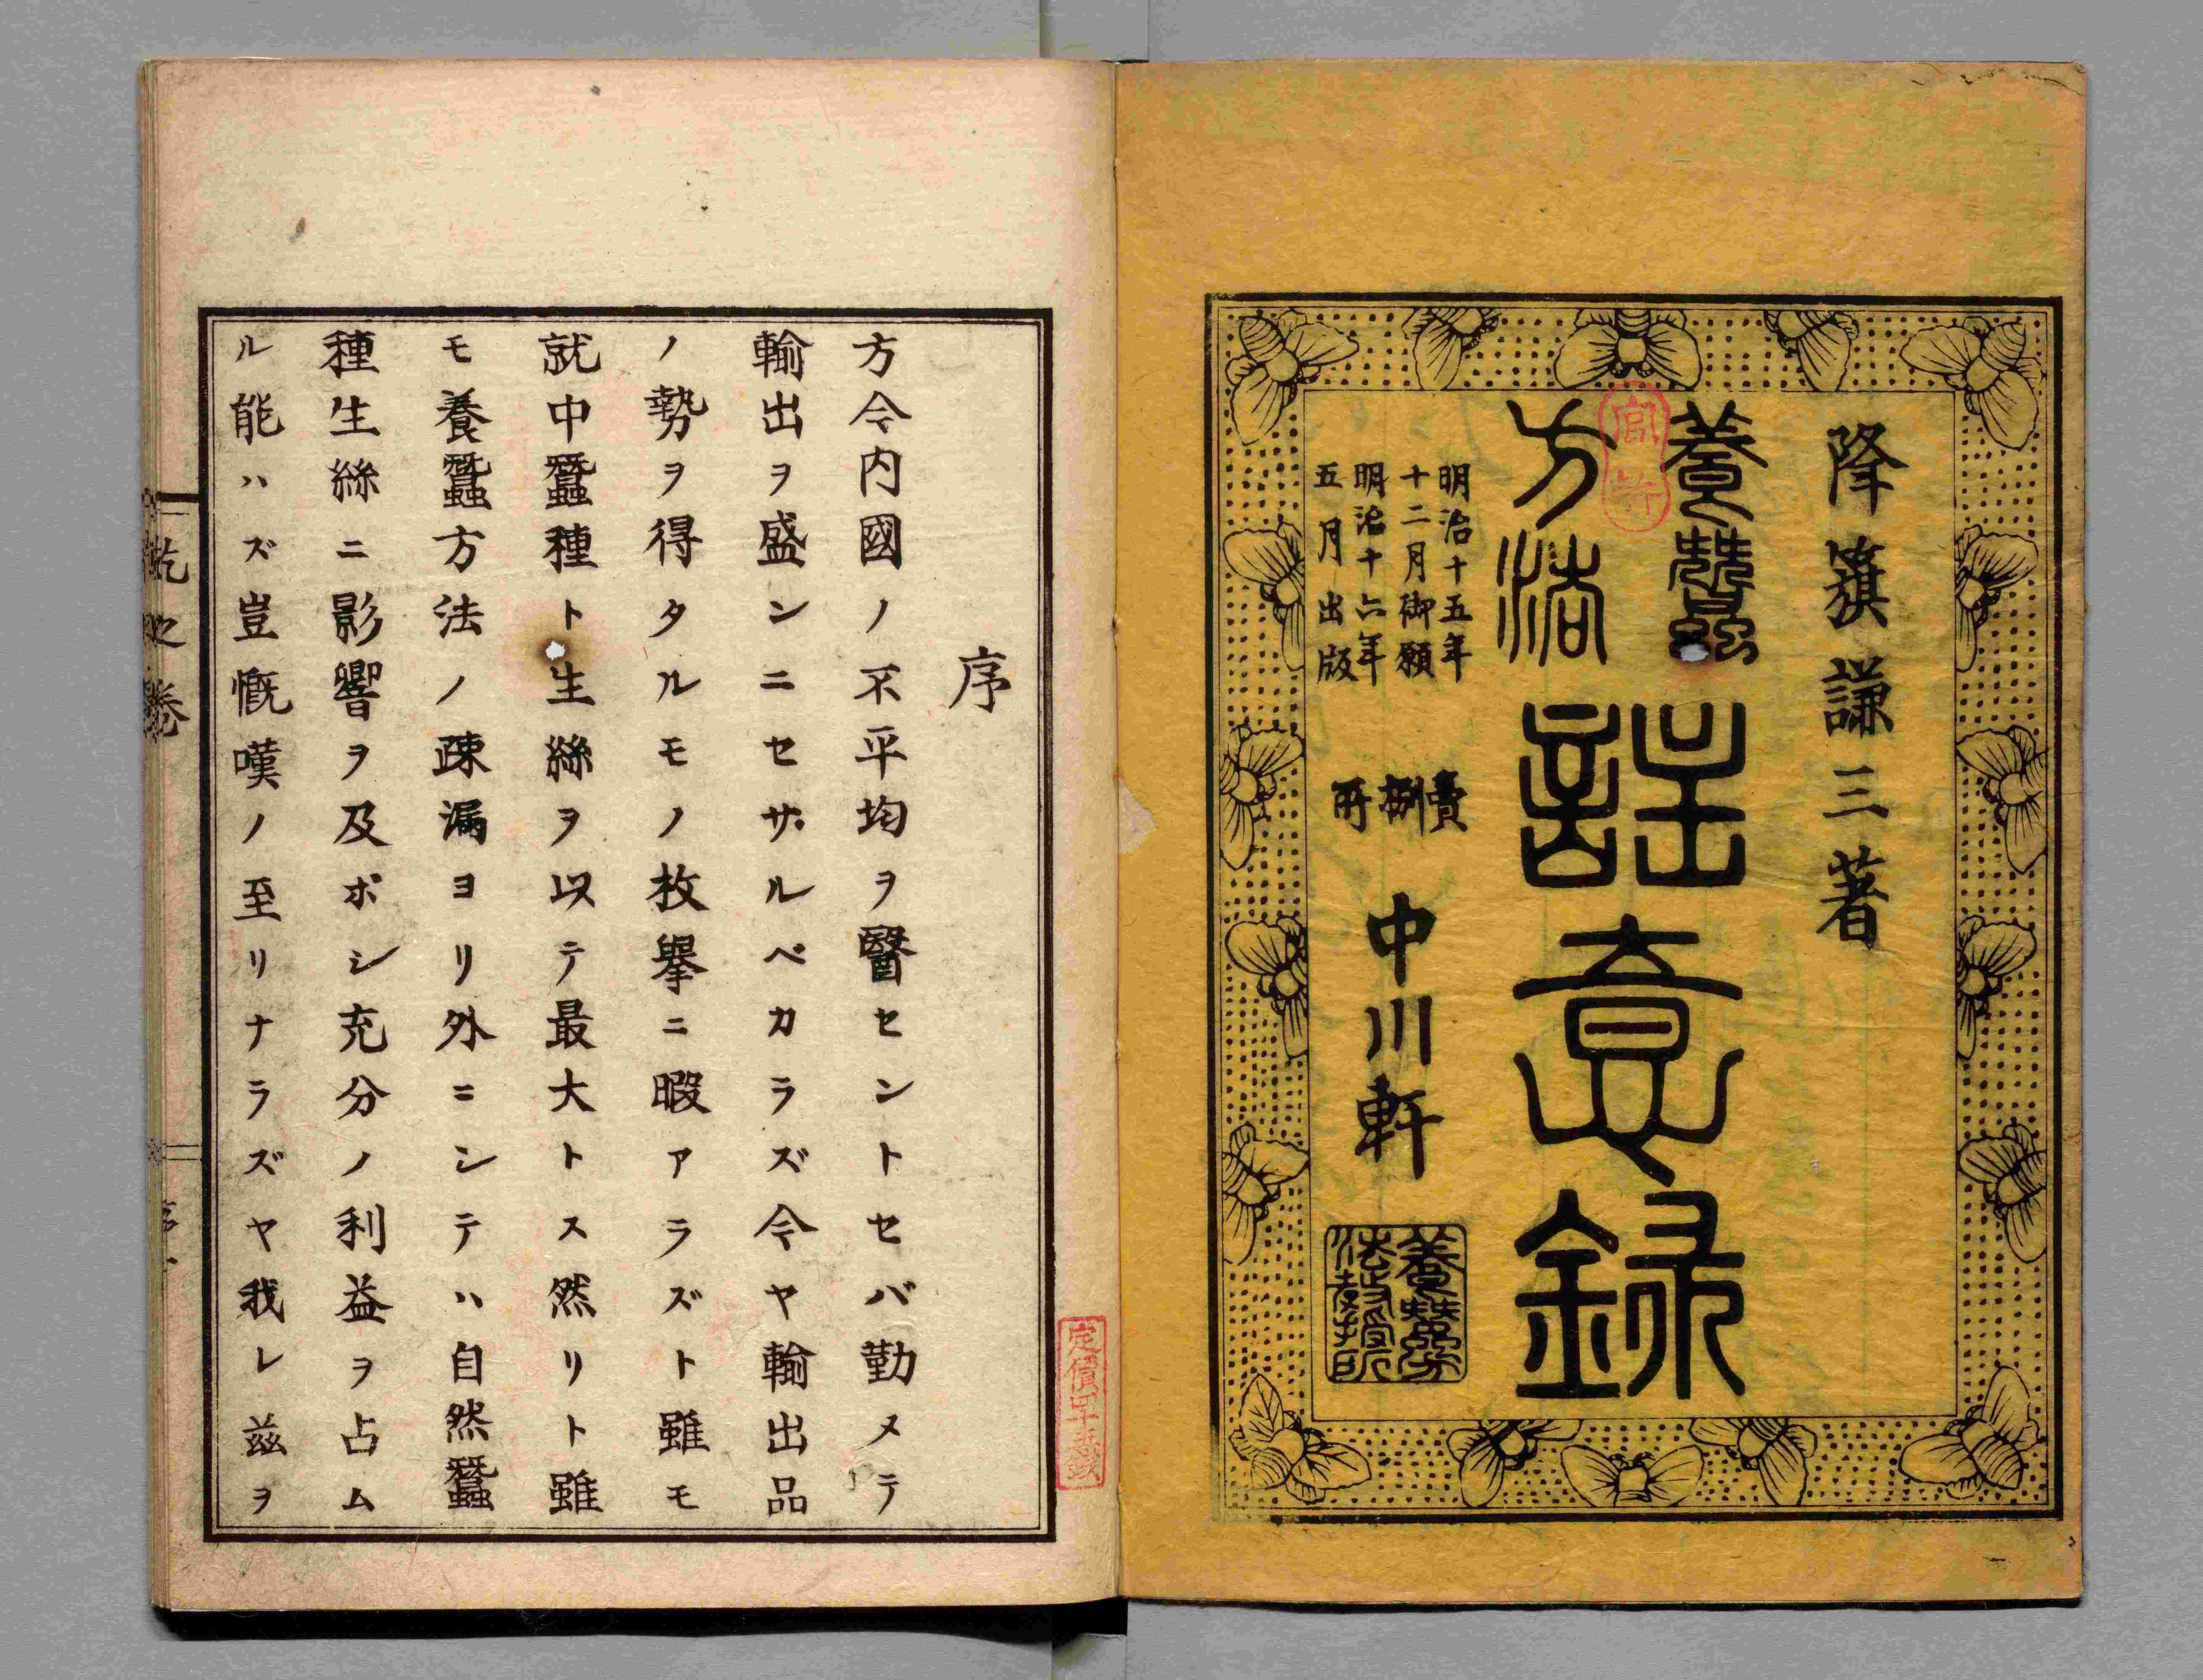 降籏謙三著
養蠶
方法
註意録
明治十五年
十二月御願
明治十六年
五月出版
賣捌所
中川軒
序
方今内國ノ不平均ヲ醫セントセバ勤メテ
輸出ヲ盛ンニセザルベカラズ今ヤ輸出品
ノ勢ヲ得タルモノ枚擧ニ暇アラズト雖モ
就中蠶種ト生絲ヲ以テ最大トス然リト雖
モ養蠶方法ノ疎漏ヨリ外ニシテハ自然蠶
種生絲ニ影響ヲ及ボシ充分ノ利益ヲ占ム
ル能ハズ豈慨嘆ノ至リナラズヤ我レ茲ヲ
乾之巻